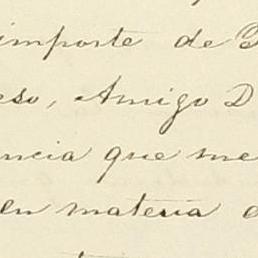 importe de
eso, Amigo D
ncia que me
en materia